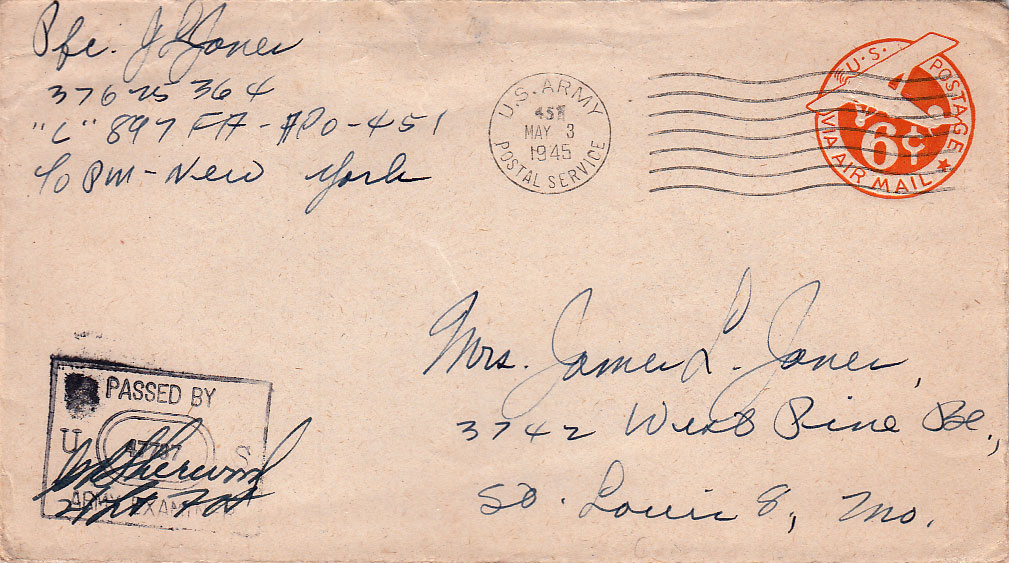 Pfc. J L Jones
37625364
"C" 897 FA - APO - 451
℅ PM - New York
U.S. ARMY
451
MAY 3
1945
POSTAL SERVICE
U.S. POSTAGE
6¢
VIA AIR MAIL
Mrs. James L. Jones,
3742 West Pine Bl.,
St. Louis 8, Mo.
PASSED BY
U 47797 S
ARMY EXAMINER
Sherwood
2nd Lt FA